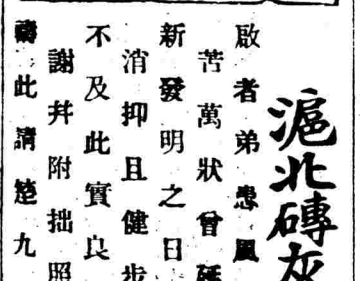 滬北磚灰
啟者弟患風
苦萬狀曾延
新發明之日
消抑且健步
不及此實良
謝井附拙照
此請楚九